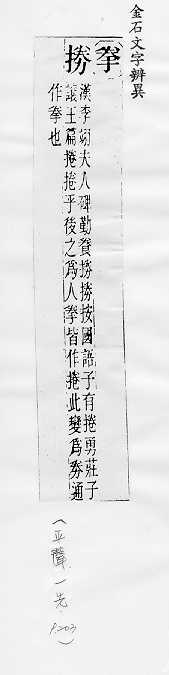 金石文字辨異
拳
漢李翊夫人碑勤養按國語子有捲勇莊子
讓王篇捲捲乎後之為人拳皆作捲此變為券通
作拳也
(平聲一先 P.203)